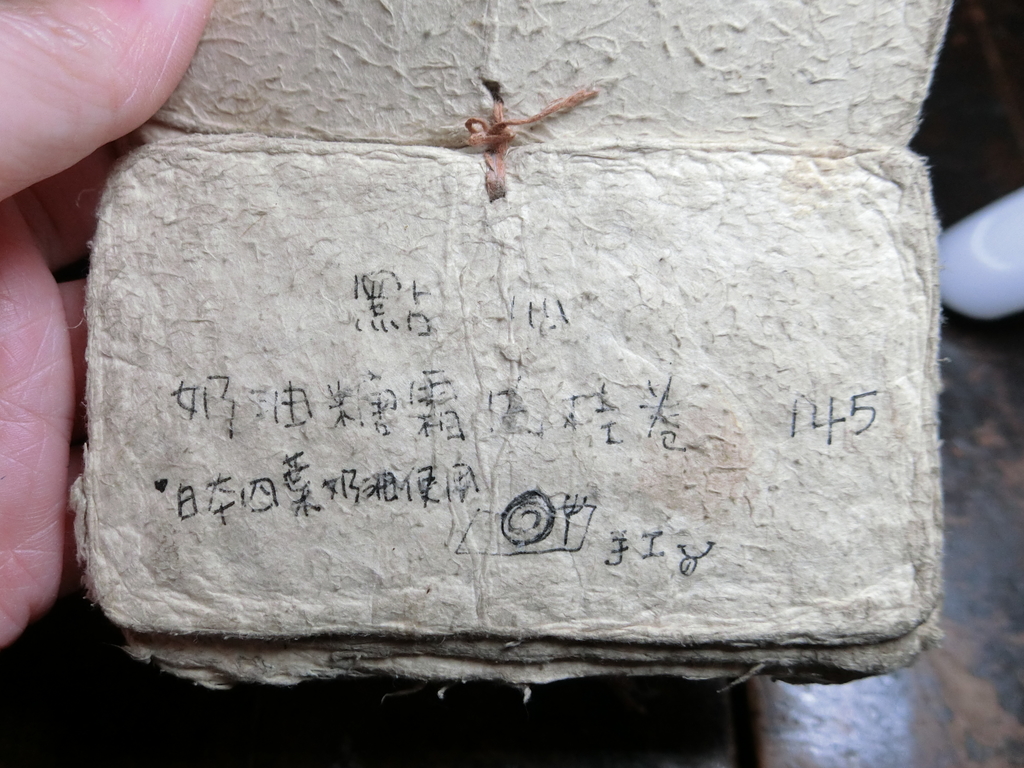 點心
奶油糖霜肉桂卷 145
日本四葉奶油使用
手工